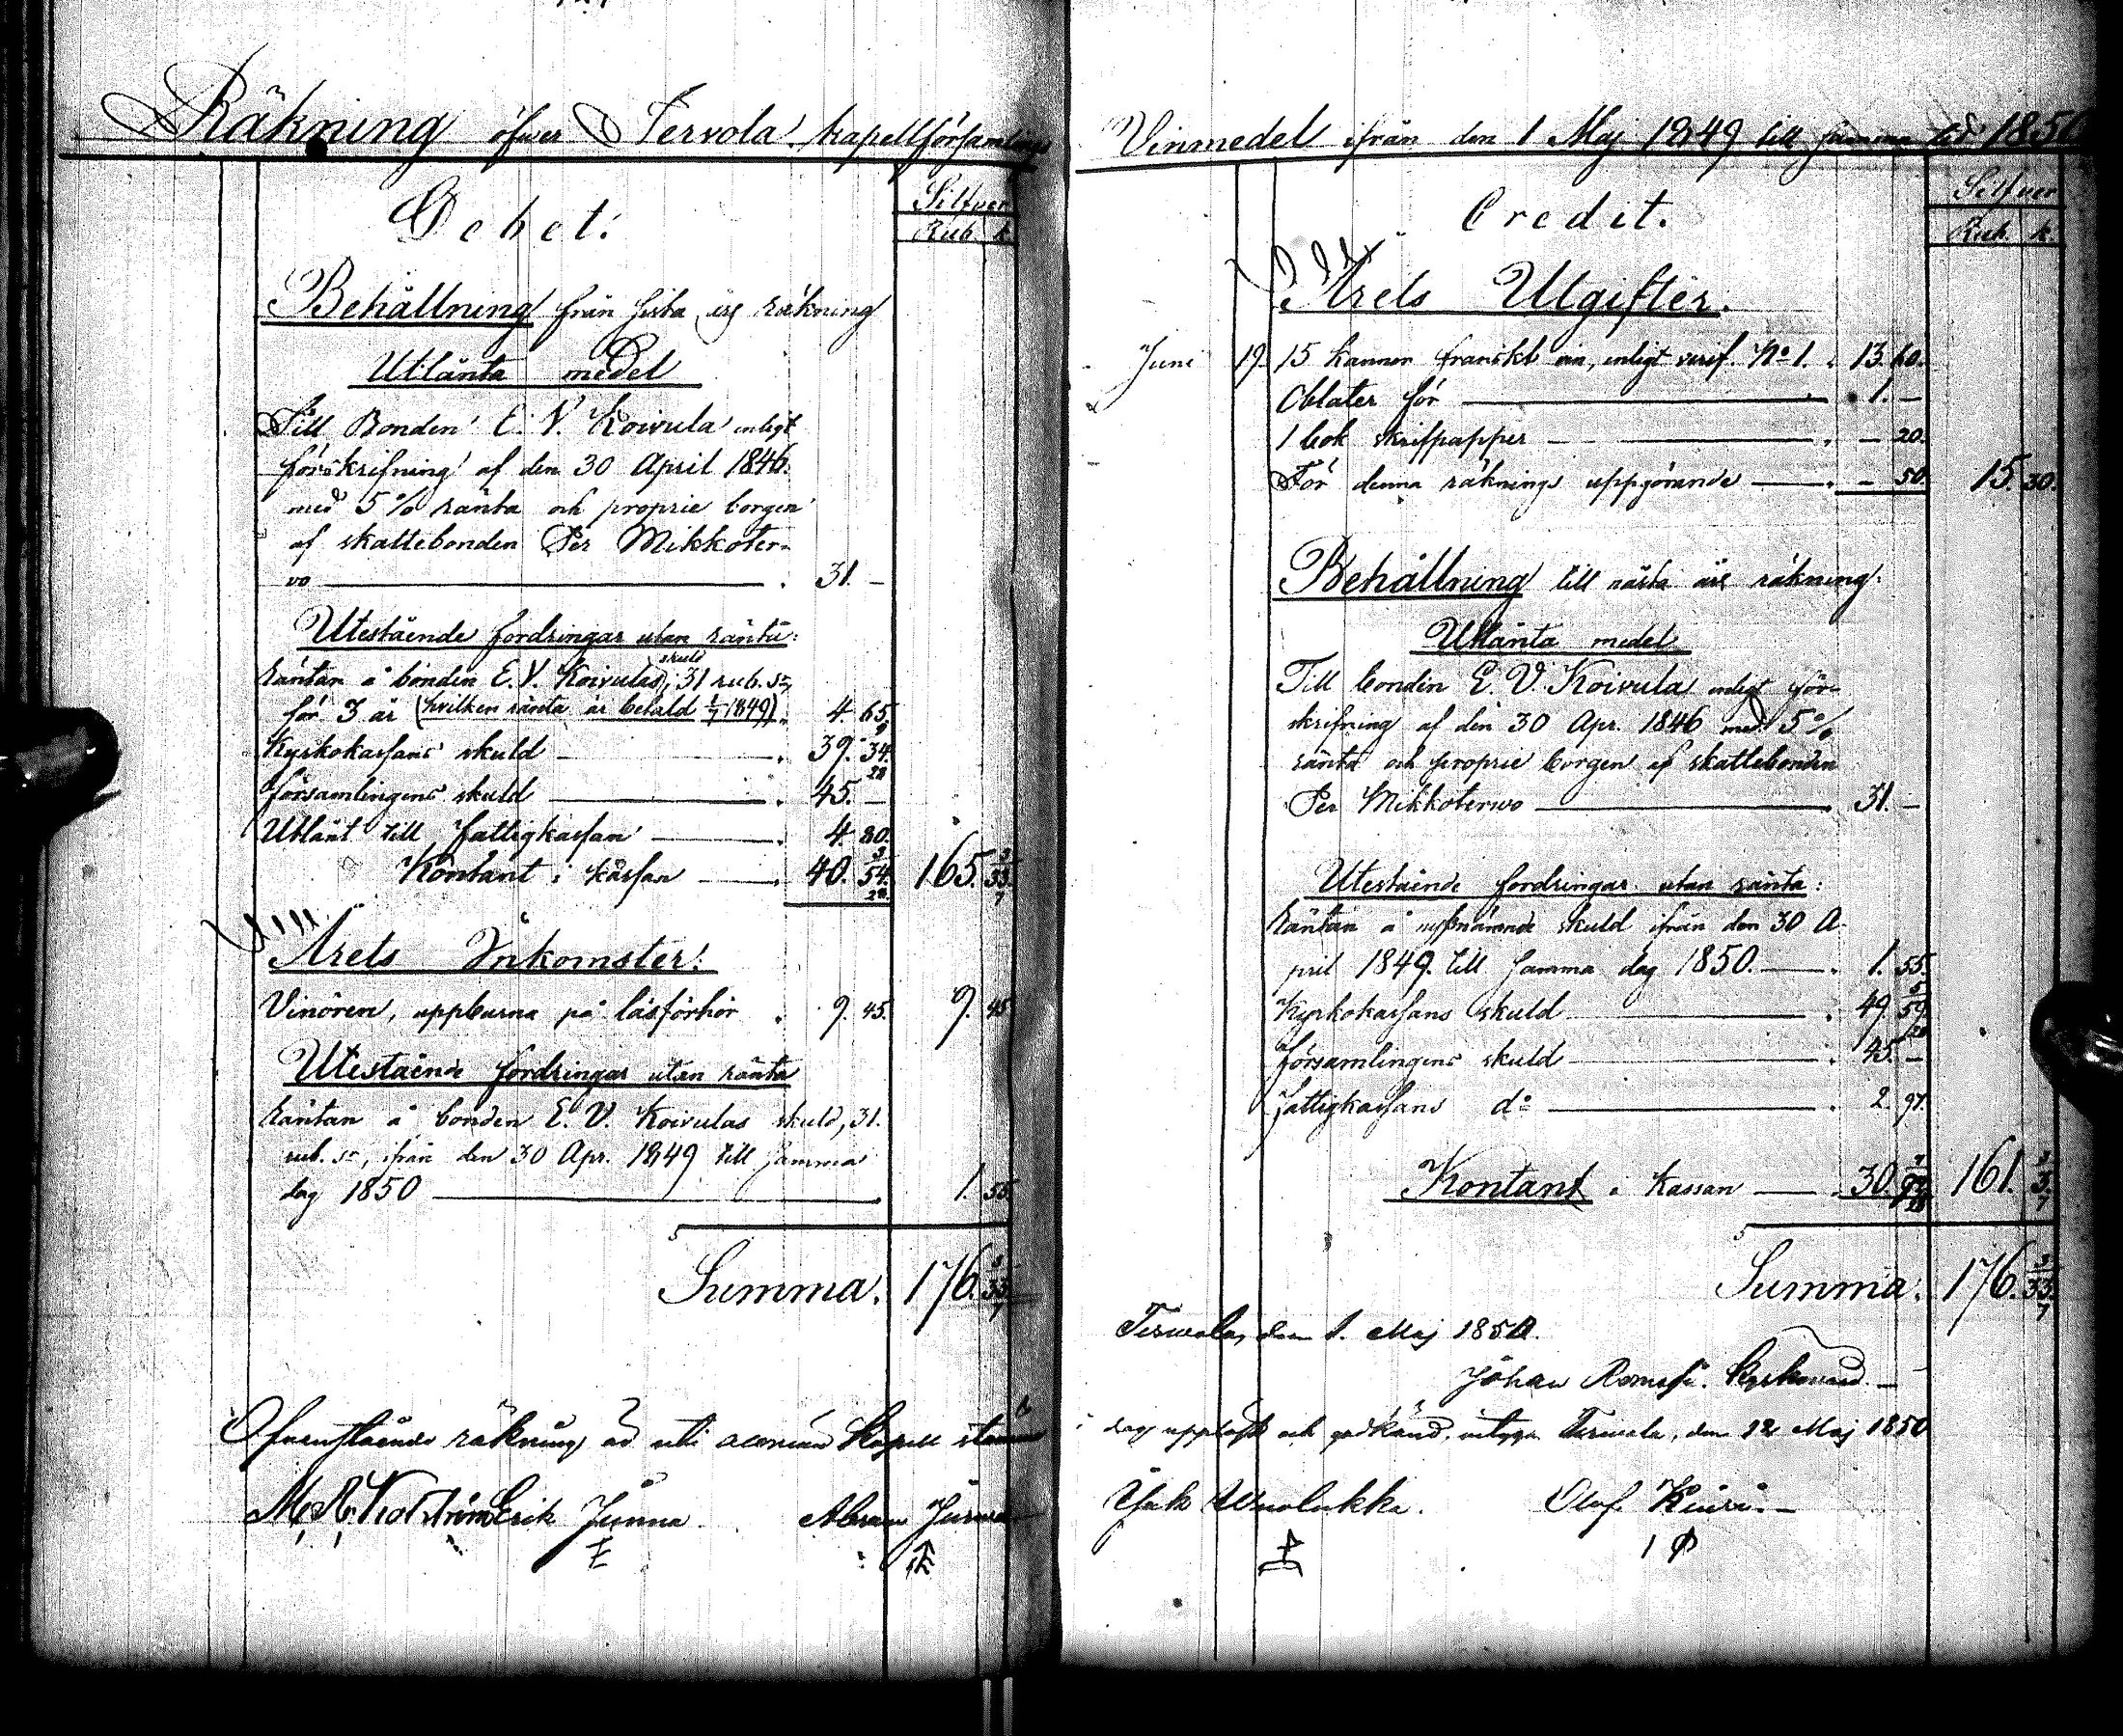 Räkning öfver Tervola kapellförsamlings
Debet:
Silfver
Rub. k.
Behållning från sista års räkning
Utlånta medel
Till Bonden E. V. Koivula enligt
förskrifning af den 30 April 1846.
med 5% ränta och proprie borgen
af skattebonden Per Mikkoter-
vo 31. —
Utestående fordringar utan ränta:
Räntan å bonden E. V. Koivulas skuld, 31 rub. sr,
för 3 år (hvilken ränta är betald 1/7 1849) 4. 65.
Kyrkokassans skuld 39. 34. 9/28
församlingens skuld 45. —
Utlånt till fattigkassan 4. 80.
Kontant i kassan 40. 54. 3/28 165. 33. 3/7
Årets Inkomster:
Vinören, uppburna på läsförhör 9. 45. 9. 45.
Utestående fordringar utan ränta
Räntan å bonden E. V. Koivulas skuld, 31.
rub. sr, ifrån den 30 Apr. 1849 till samma
dag 1850 1. 55.
Summa. 176. 33. 3/7
Ofvanstående räkning är uti allmän Kapell stämma
Erik Junna. Abram
Vinmedel ifrån den 1 Maj 1849 till samma tid 1850
Credit.
Silfver
Rub. k.
Årets Utgifter.
Juni 19. 15 kannor franskt vin, enligt verif. No 1. 13. 60.
Oblater för 1. —
1 bok skrifpapper — 20.
För denna räknings uppgörande — 50. 15. 30.
Behållning till nästa års räkning:
Utlånta medel
Till bonden E. V. Koivula enligt för-
skrifning af den 30 Apr. 1846 med 5%
ränta och proprie borgen af skattebonden
Per Mikkoterwo 31. —
Utestående fordringar utan ränta:
Räntan å nyssnämnde skuld ifrån den 30 A-
pril 1849. till samma dag 1850. 1. 55.
Kyrkokassans skuld 49. 59. 5/28
församlingens skuld 45. —
fattigkassans do 2. 97.
Kontant i Kassan 30. 161. 3. 3/7
Summa. 176. 33. 3/7
Tervola, den 1. Maj 1850.
Johan Kyrkovärd.
i dag uppläst och godkänd, intyga Tervola, den 12 Maj 1850
Olof